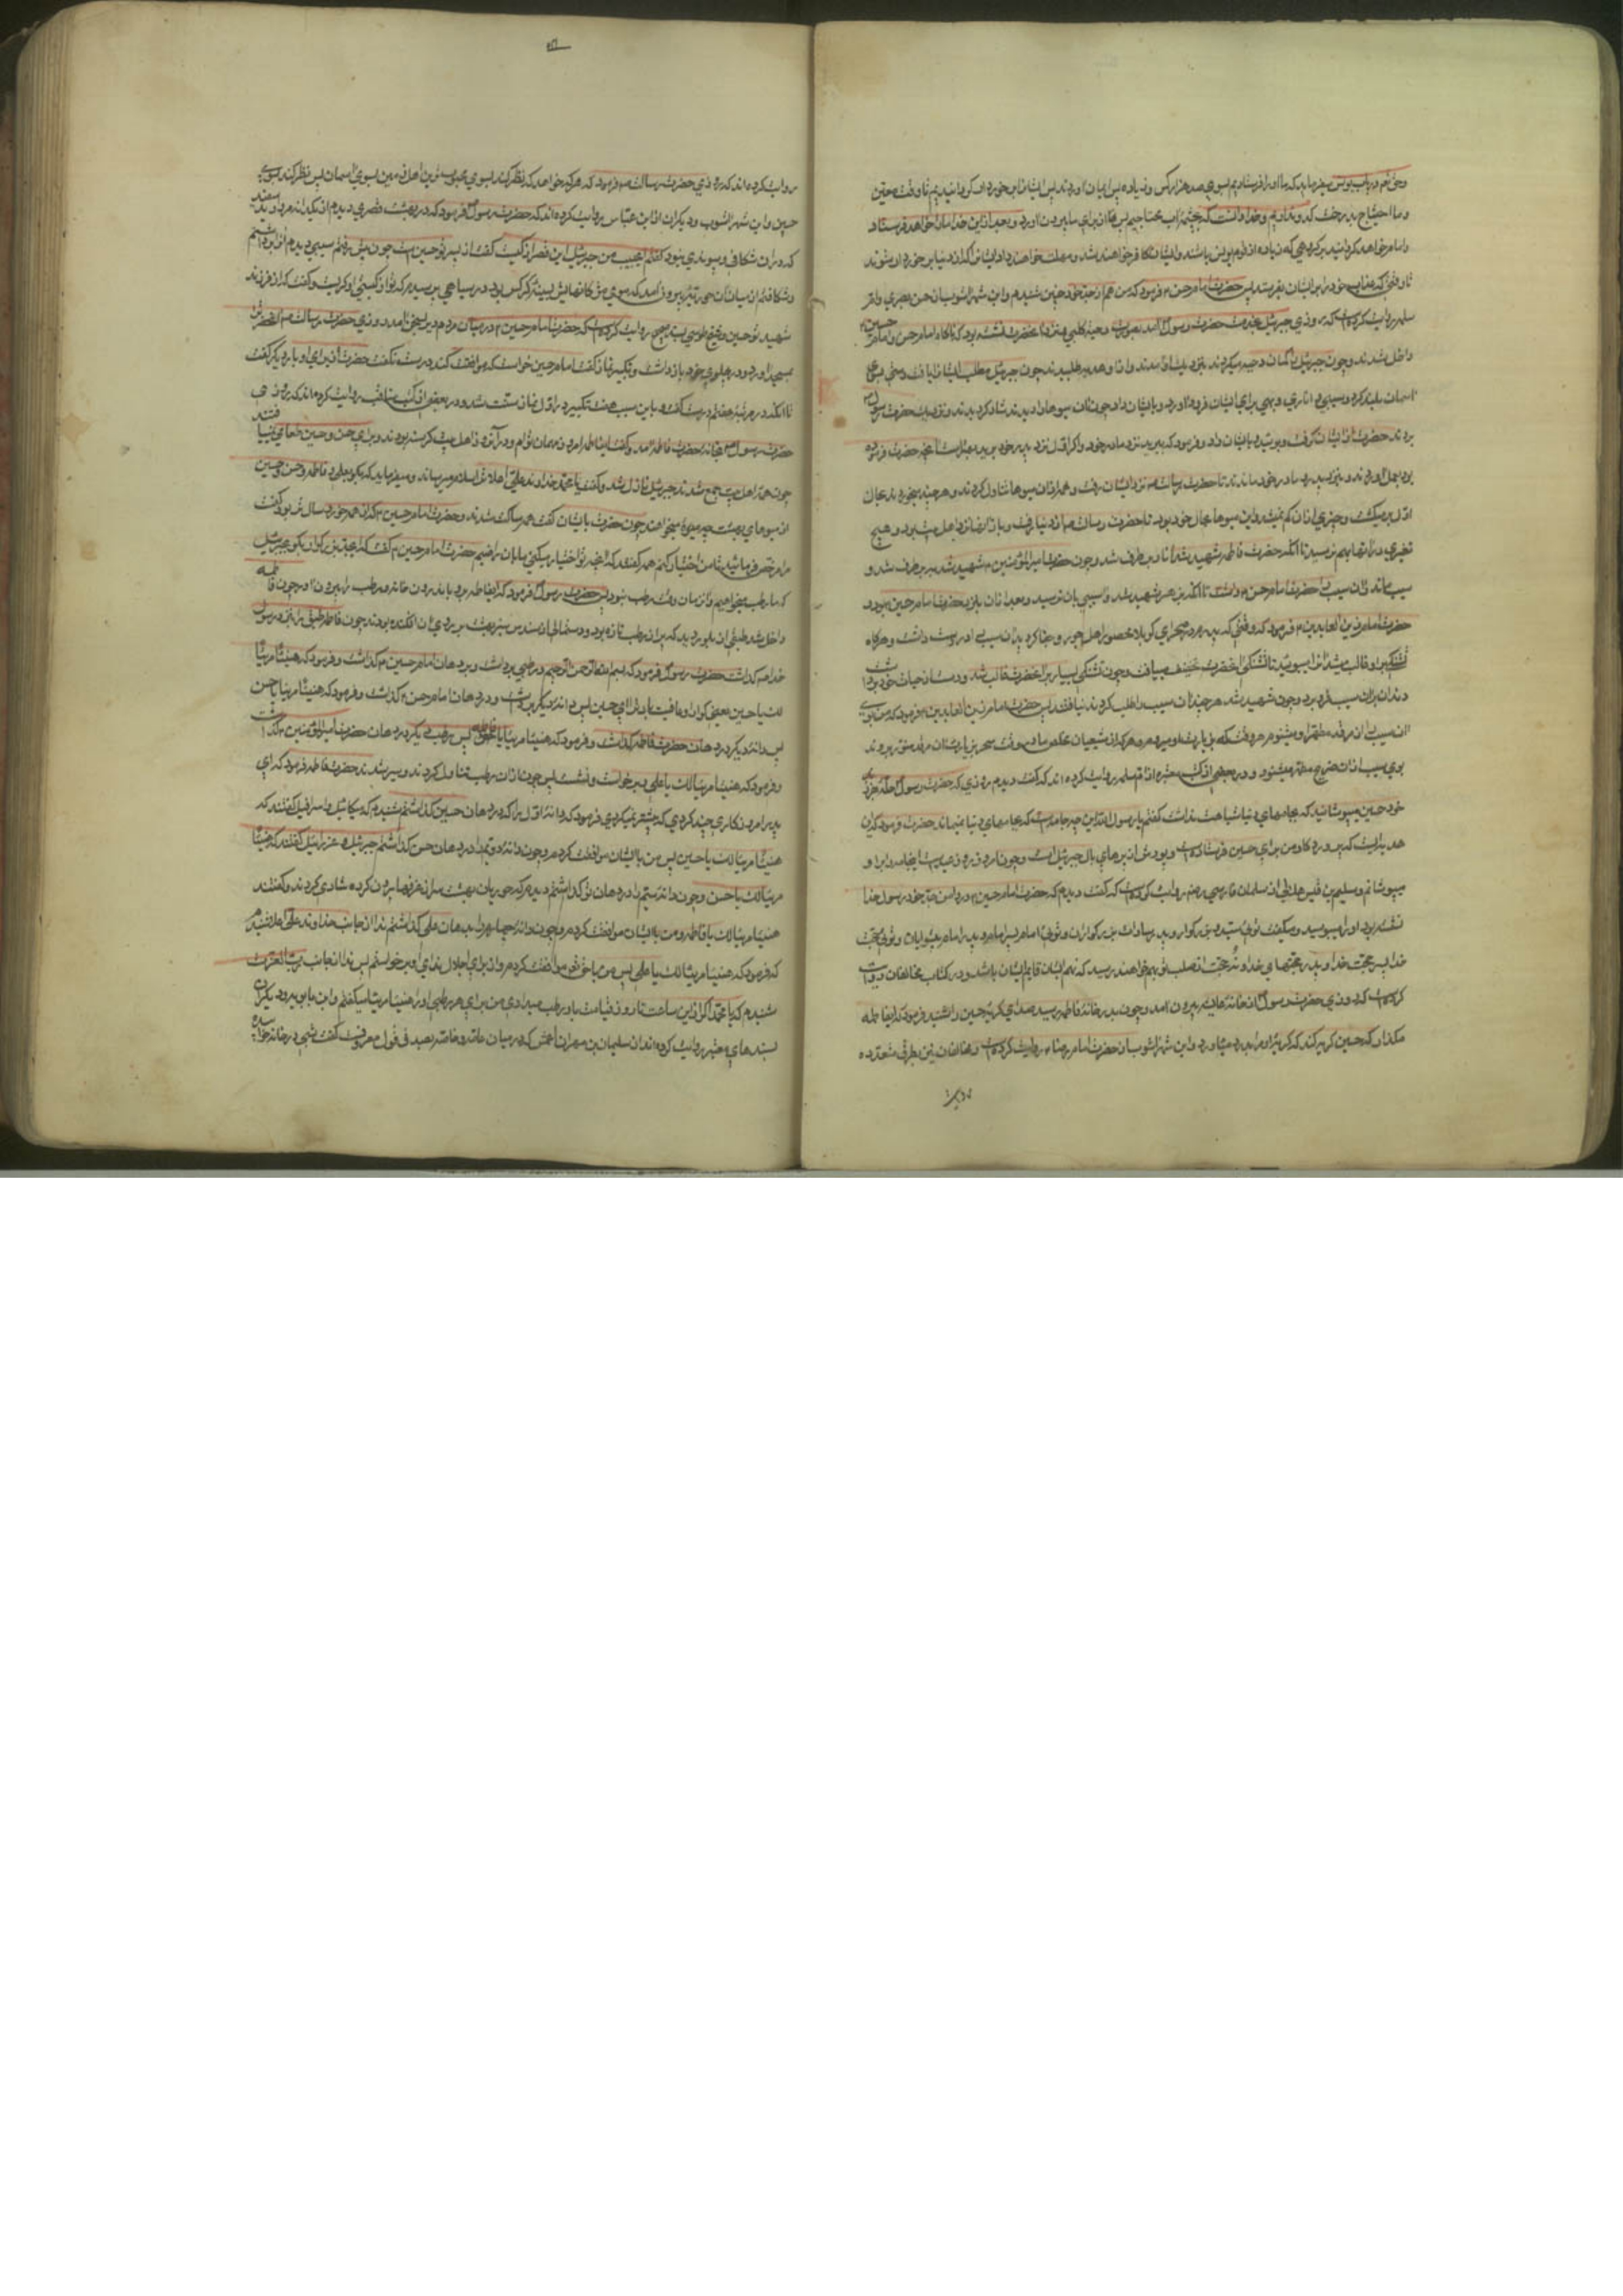 و ما احتیاج بدرخت کدو نداریم و خدا
تا وقتی که عذاب خود را بر ایشان بفرستد پس حضرت امام حسن فرمود که من هم از جد خود چنین شنیدم و ابن شهرآشوب از حسن بصری و ام
سلمه روایت کرده است که روزی جبرئیل بخدمت حضرت رسول آمد بصورت دحیه کلبی و نزد آنحضرت نشسته بود که ناگاه امام حسن و امام حسین
داخل شدند و چون جبرئیل را گمان دحیه میکردند بنزدیک او آمدند و از او هدیه میطلبیدند چون جبرئیل مطلب ایشان را یافت دستی بسوی
آسمان بلند کرد و سیبی و اناری و بهی برای ایشان فرود آورد و بایشان داد چون آن میوها را دیدند شاد گردیدند و نزدیک حضرت رسول
بردند حضرت از ایشان گرفت و بوئید و بایشان داد و فرمود که ببرید بنزد مادر خود و اگر اول نزد پدر خود ببرید بهتر است آنچه حضرت فرموده
بود بعمل آوردند و نزد پدر و مادر خود ماندند تا حضرت رسالت نزد ایشان رفت و همه از آن میوها تناول کردند و هر چند میخوردند بحال
اول برمیگشت و چیزی از آن کم نمیشد و این میوها بحال خود بود تا حضرت رسالت از دنیا رفت و باز آنها نزد اهل بیت بود و هیچ
تغیری در آنها بهم نرسید تا آنکه حضرت فاطمه شهید شد انار برطرف شد و چون حضرت امیرالمؤمنین شهید شد به برطرف شد و
سیب ماند و آن سیب را حضرت امام حسن داشت تا آنکه بزهر شهید شد و آسیبی بآن نرسید و بعد از آن نزد حضرت امام حسین بود
حضرت امام زین العابدین فرمود که وقتی که پدرم در صحرای کربلا محصور اهل جور و جفا گردید آن سیب را در دست داشت و هرگاه
تشنگی بر او غالب میشد آنرا میبوئید تا تشنگی آنحضرت تخفیف مییافت و چون تشنگی بسیار بر آنحضرت غالب شد و دست از حیات خود برداشت
دندان بر آن سیب فرو برد و چون شهید شد هر چند آن سیب را طلب کردند نیافتند پس حضرت امام زین العابدین فرمود که من بوی
آن سیب را از مرقد مطهر او میشنوم هر وقت که بزیارت او میروم و هر که از شیعیان مخلص ما در وقت سحر بزیارت آن مرقد منور برود
بوی سیب از آن ضریح مطهر میشنود و در بعضی از کتب معتبره از ام سلمه روایت کرده‌اند که گفت دیدم روزی که حضرت رسول
خود حسین میپوشانید که بجامهای دنیا شباهت نداشت گفتم یا رسول الله این چه جامه‌ایست که بجامهای دنیا نمیماند حضرت فرمود که این
هدیه‌ایست که پروردگار من برای حسین فرستاده است و پودش از پرهای بال جبرئیل است
میپوشانم و سلیم بن قیس هلالی از سلمان فارسی روایت کرده است که گفت دیدم که حضرت امام حسین در دامن جد خود رسول خدا
نشسته بود او را میبوسید و میگفت توئی سید و بزرگوار و پدر سادات بزرگواران و توئی امام پسر امام و پدر امام پیشوایان و توئی حجت
خدا پسر حجت خدا و پدر حجتهای خدا و نه حجت از صلب تو بهم خواهند رسید که نهم ایشان قایم ایشان باشد و در کتاب مخالفان روایت
کرده است که روزی حضرت رسول از خانه عایشه بیرون آمد و چون بدر خانه فاطمه رسید صدای گریه حسین را شنید فرمود که ای فاطمه
مگذار که حسین گریه کند که گریه او مرا بدرد میآورد و ابن شهرآشوب از حضرت امام رضا روایت کرده است و مخالفان نیز بطرق متعدده
روایت کرده‌اند که روزی حضرت رسالت فرمود که هر که خواهد که نظر کند بسوی محبوب‌ترین اهل زمین بسوی آسمان پس نظر کند بسوی
حسین و ابن شهرآشوب و دیگران از ابن عباس روایت کرده‌اند که حضرت رسول فرمود که در بهشت قصری دیدم از یکدانه مروارید سفید
که در آن شکافی و پیوندی نبود گفتم ای حبیب من جبرئیل این قصر از کیست گفت از پسر تو حسین است چون پیش رفتم سیبی دیدم آنرا برداشتم
شهید تو حسین و شیخ طوسی بسند صحیح روایت کرده است که حضرت امام حسین
بمسجد آورد و در پهلوی خود بازداشت و تکبیر نماز گفت امام حسین خواست که موافقت کند درست نگفت حضرت از برای او بار دیگر گفت
تا آنکه در مرتبه هفتم درست گفت و باین سبب هفت تکبیر در اول نماز سنت شد و در بعضی از کتب مناقب روایت کرده‌اند که روزی
حضرت رسول بخانه حضرت فاطمه آمد و گفت ای فاطمه امروز مهمان توام
چون همه اهل بیت جمع شدند جبرئیل نازل شد و گفت یا محمد خداوند علی اعلا ترا سلام میرساند و میفرماید که بگو بعلی و فاطمه و حسن و حسین
از میوهای بهشت چه میوه میخواهند چون حضرت بایشان گفت همه ساکت شدند و حضرت امام حسین که از همه خورد سال تر بود گفت
مرا مرخص فرمائید تا من اختیار کنم همه گفتند که آنچه تو اختیار میکنی ما بآن راضیم حضرت امام حسین گفت که ای جد بزرگوار بگو بجبرئیل
که ما رطب میخواهیم و آن زمان وقت رطب نبود پس حضرت رسول فرمود که ای فاطمه برو باندرون خانه و رطب را بیرون آور چون فاطمه
داخل شد طبقی از بلور دید که پر از رطب تازه بود و دستمالی از سندس سبز بهشت بر روی آن افکنده بودند چون فاطمه طبق را نزد رسول
خدا گذاشت حضرت رسول فرمود که بسم الله الرحمن الرحیم و رطبی برداشت و بر دهان امام حسین گذاشت و فرمود که هنیئا مریئا
لک یا حسین یعنی گوارا و عافیت باد ترا ای حسین پس دانه دیگر برداشت و در دهان امام حسن گذاشت و فرمود که هنیئا مریئا یا حسن
پس دانه دیگر در دهان حضرت فاطمه گذاشت و فرمود که هنیئا مریئا یا فاطمه پس رطب دیگر در دهان حضرت امیرالمؤمنین گذاشت
و فرمود که هنیئا مریئا لک یا علی و برخواست و نشست پس چون از آن رطب تناول کردند و سیر شدند حضرت فاطمه فرمود که ای
پدر امروز کاری چند کردی که پیشتر نمیکردی فرمود که دانه اول را که در دهان حسین گذاشتم شنیدم که میکائیل و اسرافیل گفتند که
هنیئا مریئا لک یا حسین پس من با ایشان موافقت کردم و چون دانه دوم را در دهان حسن گذاشتم جبرئیل و عزرائیل گفتند که هنیئا
مریئا لک یا حسن و چون دانه سیم را در دهان تو گذاشتم دیدم که حوریان بهشت سر از غرفها بیرون کرده شادی کردند و گفتند
هنیئا مریئا لک یا فاطمه و من با ایشان موافقت کردم و چون دانه چهارم را بدهان علی گذاشتم ندا از جانب خداوند علی اعلا شنیدم
که فرمود که هنیئا مریئا لک یا علی پس من با حق موافقت کردم و از برای اجلال ندای او برخواستم پس ندا از جانب رب العزت
شنیدم که یا محمد اگر از این ساعت تا روز قیامت باو رطب میدادی من برای هر رطبی او را هنیئا مریئا میگفتم و ابن بابویه و دیگران
بسندهای معتبر روایت کرده‌اند از سلیمان بن مهران اعمش که در میان عامه و خاصه بصدق قول معروفست گفت شبی در خانه